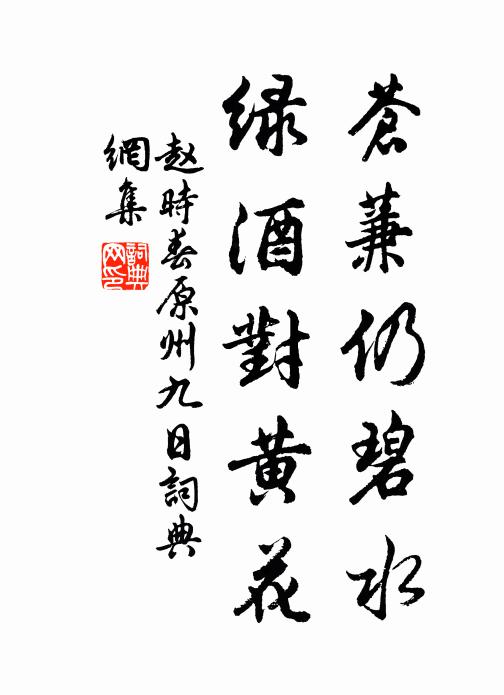 蒼蒹仍碧水
綠酒對黃花
赵時春原州九日詞典
網集
詞典网印